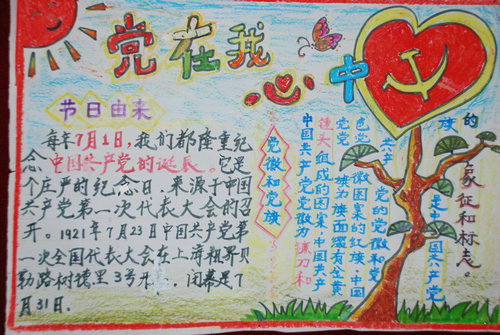 党在我心中
节日由来
每年7月1日,我们都隆重纪
念中国共产党的诞辰。它是
个庄严的纪念日,来源于中国
共产党第一次代表大会的召
开。1921年7月23日中国共产党第
一次全国代表大会在上海租界贝
勒路树德里3号开
闭幕是7
月31日.
党徽和党旗
中国共产党党徽为镰刀和
锤头组成的图案.中国共产
党党旗为旗面缀有金黄
色党徽图案的红旗.中国
共产党的党徽和党
旗是中国共产党
的象征和标志。